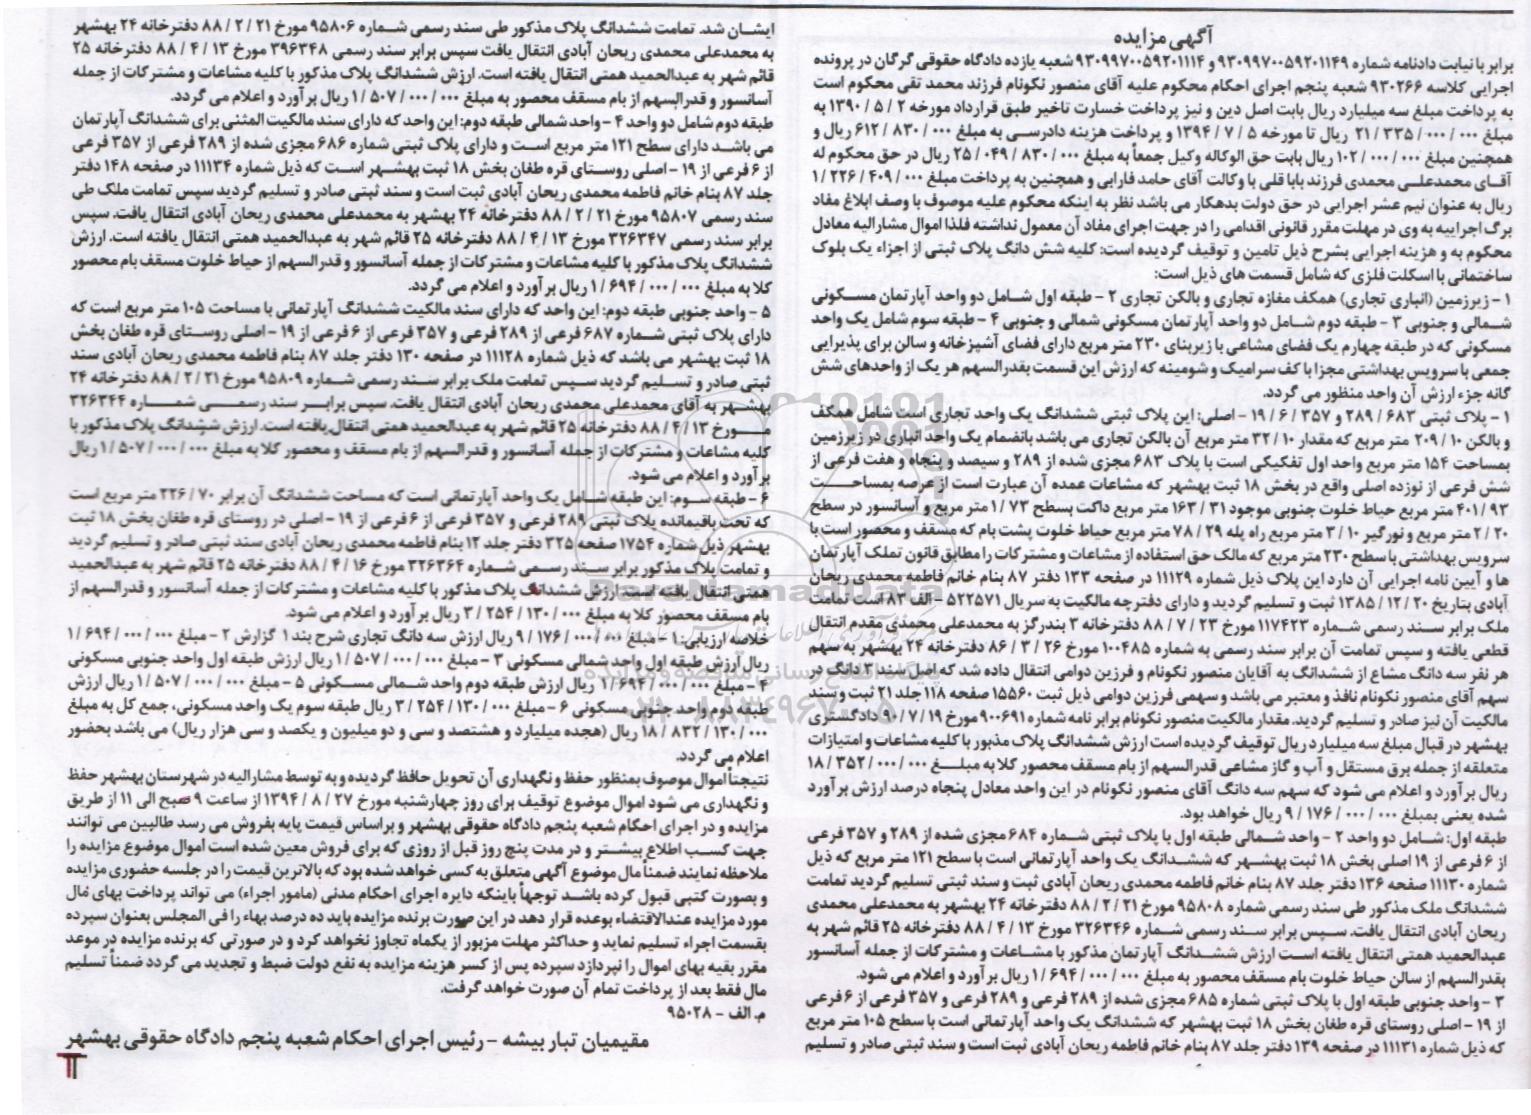 آگهی مزایده
برابر با نیابت دادنامه شماره ۹۳۰۹۹۷۰۰۵۹۲۰۱۱۴۹ و ۹۳۰۹۹۷۰۰۵۹۲۰۱۱۱۴ شعبه یازده دادگاه حقوقی گرگان در پرونده
اجرایی کلاسه ۹۳۰۲۶۶ شعبه پنجم اجرای احکام محکوم علیه آقای منصور نکونام فرزند محمد تقی محکوم است
به پرداخت مبلغ سه میلیارد ریال بابت اصل دین و نیز پرداخت خسارت تاخیر طبق قرارداد مورخه ۲ / ۵ / ۱۳۹۰ به
مبلغ ۰۰۰ / ۰۰۰ / ۳۳۵ / ۲۱ ریال تا مورخه ۵ / ۷ / ۱۳۹۴ و پرداخت هزینه دادرسی به مبلغ ۰۰۰ / ۸۳۰ / ۶۱۲ ریال و
همچنین مبلغ ۰۰۰ / ۰۰۰ / ۱۰۲ ریال بابت حق الوکاله وکیل جمعاً به مبلغ ۰۰۰ / ۸۳۰ / ۰۴۹ / ۲۵ ریال در حق محکوم له
آقای محمدعلی محمدی فرزند بابا قلی با وکالت آقای حامد فارابی و همچنین به پرداخت مبلغ ۰۰۰ / ۴۰۹ / ۲۲۶ / ۱
ریال به عنوان نیم عشر اجرایی در حق دولت بدهکار می باشد نظر به اینکه محکوم علیه موصوف با وصف ابلاغ مفاد
برگ اجراییه به وی در مهلت مقرر قانونی اقدامی را در جهت اجرای مفاد آن معمول نداشته فلذا اموال مشارالیه معادل
محکوم به و هزینه اجرایی بشرح ذیل تامین و توقیف گردیده است: کلیه شش دانگ پلاک ثبتی از اجزاء یک بلوک
ساختمانی با اسکلت فلزی که شامل قسمت های ذیل است:
۱ - زیرزمین (انباری تجاری) همکف مغازه تجاری و بالکن تجاری ۲ - طبقه اول شامل دو واحد آپارتمان مسکونی
شمالی و جنوبی ۳ - طبقه دوم شامل دو واحد آپارتمان مسکونی شمالی و جنوبی ۴ - طبقه سوم شامل یک واحد
مسکونی که در طبقه چهارم یک فضای مشاعی با زیربنای ۲۳۰ متر مربع دارای فضای آشپزخانه و سالن برای پذیرایی
جمعی با سرویس بهداشتی مجزا با کف سرامیک و شومینه که ارزش این قسمت بقدرالسهم هر یک از واحدهای شش
گانه جزء ارزش آن واحد منظور می گردد.
۱ - پلاک ثبتی ۶۸۳ / ۲۸۹ و ۳۵۷ / ۶ / ۱۹ - اصلی: این پلاک ثبتی ششدانگ یک واحد تجاری است شامل همکف
و بالکن ۱۰ / ۲۰۹ متر مربع که مقدار ۱۰ / ۳۲ متر مربع آن بالکن تجاری می باشد بانضمام یک واحد انباری در زیرزمین
بمساحت ۱۵۴ متر مربع واحد اول تفکیکی است با پلاک ۶۸۳ مجزی شده از ۲۸۹ و سیصد و پنجاه و هفت فرعی از
شش فرعی از نوزده اصلی واقع در بخش ۱۸ ثبت بهشهر که مشاعات عمده آن عبارت است از عرصه بمساحت
۹۳ / ۴۰۱ متر مربع حیاط خلوت جنوبی موجود ۳۱ / ۱۶۳ متر مربع داکت بسطح ۷۳ / ۱ متر مربع و آسانسور در سطح
۲۰ / ۲ متر مربع و نورگیر ۱۰ / ۳ متر مربع راه پله ۲۹ / ۷۸ متر مربع حیاط خلوت پشت بام که مسقف و محصور است با
سرویس بهداشتی با سطح ۲۳۰ متر مربع که مالک حق استفاده از مشاعات و مشترکات را مطابق قانون تملک آپارتمان
ها و آیین نامه اجرایی آن دارد این پلاک ذیل شماره ۱۱۱۲۹ در صفحه ۱۳۳ دفتر ۸۷ بنام خانم فاطمه محمدی ریحان
آبادی بتاریخ ۲۰ / ۱۲ / ۱۳۸۵ ثبت و تسلیم گردید و دارای دفترچه مالکیت به سریال ۵۲۲۵۷۱ - الف ۸۲ است تمامت
ملک برابر سند رسمی شماره ۱۱۷۴۲۳ مورخ ۲۳ / ۷ / ۸۸ دفترخانه ۳ بندرگز به محمدعلی محمدی مقدم انتقال
قطعی یافته و سپس تمامت آن برابر سند رسمی به شماره ۱۰۰۴۸۵ مورخ ۲۶ / ۳ / ۸۶ دفترخانه ۲۴ بهشهر به سهم
هر نفر سه دانگ مشاع از ششدانگ به آقایان منصور نکونام و فرزین دوامی انتقال داده شد که اصل سند ۳ دانگ در
سهم آقای منصور نکونام نافذ و معتبر می باشد و سهمی فرزین دوامی ذیل ثبت ۱۵۵۶۰ صفحه ۱۱۸ جلد ۲۱ ثبت و سند
مالکیت آن نیز صادر و تسلیم گردید. مقدار مالکیت منصور نکونام برابر نامه شماره ۹۰۰۶۹۱ مورخ ۱۹ / ۷ / ۹۰ دادگستری
بهشهر در قبال مبلغ سه میلیارد ریال توقیف گردیده است ارزش ششدانگ پلاک مذبور با کلیه مشاعات و امتیازات
متعلقه از جمله برق مستقل و آب و گاز مشاعی قدرالسهم از بام مسقف محصور کلا به مبلغ ۰۰۰ / ۰۰۰ / ۳۵۲ / ۱۸
ریال برآورد و اعلام می شود که سهم سه دانگ آقای منصور نکونام در این واحد معادل پنجاه درصد ارزش برآورد
شده یعنی بمبلغ ۰۰۰ / ۰۰۰ / ۱۷۶ / ۹ ریال خواهد بود.
طبقه اول: شامل دو واحد ۲ - واحد شمالی طبقه اول با پلاک ثبتی شماره ۶۸۴ مجزی شده از ۲۸۹ و ۳۵۷ فرعی
از ۶ فرعی از ۱۹ اصلی بخش ۱۸ ثبت بهشهر که ششدانگ یک واحد آپارتمانی است با سطح ۱۲۱ متر مربع که ذیل
شماره ۱۱۱۳۰ صفحه ۱۳۶ دفتر جلد ۸۷ بنام خانم فاطمه محمدی ریحان آبادی ثبت و سند ثبتی تسلیم گردید تمامت
ششدانگ ملک مذکور طی سند رسمی شماره ۹۵۸۰۸ مورخ ۲۱ / ۲ / ۸۸ دفترخانه ۲۴ بهشهر به محمدعلی محمدی
ریحان آبادی انتقال یافت. سپس برابر سند رسمی شماره ۳۲۶۳۴۶ مورخ ۱۳ / ۴ / ۸۸ دفترخانه ۲۵ قائم شهر به
عبدالحمید همتی انتقال یافته است ارزش ششدانگ آپارتمان مذکور با مشاعات و مشترکات از جمله آسانسور
بقدرالسهم از سالن حیاط خلوت بام مسقف محصور به مبلغ ۰۰۰ / ۰۰۰ / ۶۹۴ / ۱ ریال برآورد و اعلام می شود.
۳ - واحد جنوبی طبقه اول با پلاک ثبتی شماره ۶۸۵ مجزی شده از ۲۸۹ فرعی و ۲۸۹ فرعی و ۳۵۷ فرعی از ۶ فرعی
از ۱۹ - اصلی روستای قره طغان بخش ۱۸ ثبت بهشهر که ششدانگ یک واحد آپارتمانی است با سطح ۱۰۵ متر مربع
که ذیل شماره ۱۱۱۳۱ در صفحه ۱۳۹ دفتر جلد ۸۷ بنام خانم فاطمه ریحان آبادی ثبت است و سند ثبتی صادر و تسلیم
ایشان شد. تمامت ششدانگ پلاک مذکور طی سند رسمی شماره ۹۵۸۰۶ مورخ ۲۱ / ۲ / ۸۸ دفترخانه ۲۴ بهشهر
به محمدعلی محمدی ریحان آبادی انتقال یافت سپس برابر سند رسمی ۳۹۶۳۴۸ مورخ ۱۳ / ۴ / ۸۸ دفترخانه ۲۵
قائم شهر به عبدالحمید همتی انتقال یافته است. ارزش ششدانگ پلاک مذکور با کلیه مشاعات و مشترکات از جمله
آسانسور و قدرالسهم از بام مسقف محصور به مبلغ ۰۰۰ / ۰۰۰ / ۵۰۷ / ۱ ریال برآورد و اعلام می گردد.
طبقه دوم شامل دو واحد ۴ - واحد شمالی طبقه دوم: این واحد که دارای سند مالکیت المثنی برای ششدانگ آپارتمان
می باشد دارای سطح ۱۲۱ متر مربع است و دارای پلاک ثبتی شماره ۶۸۶ مجزی شده از ۲۸۹ فرعی از ۳۵۷ فرعی
از ۶ فرعی از ۱۹ - اصلی روستای قره طغان بخش ۱۸ ثبت بهشهر است که ذیل شماره ۱۱۱۳۴ در صفحه ۱۴۸ دفتر
جلد ۸۷ بنام خانم فاطمه محمدی ریحان آبادی ثبت است و سند ثبتی صادر و تسلیم گردید سپس تمامت ملک طی
سند رسمی ۹۵۸۰۷ مورخ ۲۱ / ۲ / ۸۸ دفترخانه ۲۴ بهشهر به محمدعلی محمدی ریحان آبادی انتقال یافت. سپس
برابر سند رسمی ۳۲۶۳۴۷ مورخ ۱۳ / ۴ / ۸۸ دفترخانه ۲۵ قائم شهر به عبدالحمید همتی انتقال یافته است. ارزش
ششدانگ پلاک مذکور با کلیه مشاعات و مشترکات از جمله آسانسور و قدرالسهم از حیاط خلوت مسقف بام محصور
کلا به مبلغ ۰۰۰ / ۰۰۰ / ۶۹۴ / ۱ ریال برآورد و اعلام می گردد.
۵ - واحد جنوبی طبقه دوم: این واحد که دارای سند مالکیت ششدانگ آپارتمانی با مساحت ۱۰۵ متر مربع است که
دارای پلاک ثبتی شماره ۶۸۷ فرعی از ۲۸۹ فرعی و ۳۵۷ فرعی از ۶ فرعی از ۱۹ - اصلی روستای قره طغان بخش
۱۸ ثبت بهشهر می باشد که ذیل شماره ۱۱۱۲۸ در صفحه ۱۳۰ دفتر جلد ۸۷ بنام فاطمه محمدی ریحان آبادی سند
ثبتی صادر و تسلیم گردید سپس تمامت ملک برابر سند رسمی شماره ۹۵۸۰۹ مورخ ۲۱ / ۲ / ۸۸ دفترخانه ۲۴
بهشهر به آقای محمدعلی محمدی ریحان آبادی انتقال یافت. سپس برابر سند رسمی شماره ۳۲۶۳۴۴
مورخ ۱۳ / ۴ / ۸۸ دفترخانه ۲۵ قائم شهر به عبدالحمید همتی انتقال یافته است. ارزش ششدانگ پلاک مذکور با
کلیه مشاعات و مشترکات از جمله آسانسور و قدرالسهم از بام مسقف و محصور کلا به مبلغ ۰۰۰ / ۰۰۰ / ۵۰۷ / ۱ ریال
برآورد و اعلام می شود.
۶ - طبقه سوم: این طبقه شامل یک واحد آپارتمانی است که مساحت ششدانگ آن برابر ۷۰ / ۲۲۶ متر مربع است
که تحت باقیمانده پلاک ثبتی ۲۸۹ فرعی و ۳۵۷ فرعی از ۶ فرعی از ۱۹ - اصلی در روستای قره طغان بخش ۱۸ ثبت
بهشهر ذیل شماره ۱۷۵۴ صفحه ۳۲۵ دفتر جلد ۱۲ بنام فاطمه محمدی ریحان آبادی سند ثبتی صادر و تسلیم گردید
و تمامت پلاک مذکور برابر سند رسمی شماره ۳۲۶۳۶۴ مورخ ۱۶ / ۴ / ۸۸ دفترخانه ۲۵ قائم شهر به عبدالحمید
همتی انتقال یافته است ارزش ششدانگ پلاک مذکور با کلیه مشاعات و مشترکات از جمله آسانسور و قدرالسهم از
بام مسقف محصور کلا به مبلغ ۰۰۰ / ۱۳۰ / ۲۵۴ / ۳ ریال برآورد و اعلام می شود.
خلاصه ارزیابی: ۱ - مبلغ ۰۰۰ / ۰۰۰ / ۱۷۶ / ۹ ریال ارزش سه دانگ تجاری شرح بند ۱ گزارش ۲ - مبلغ ۰۰۰ / ۰۰۰ / ۶۹۴ / ۱
ریال ارزش طبقه اول واحد شمالی مسکونی ۳ - مبلغ ۰۰۰ / ۰۰۰ / ۵۰۷ / ۱ ریال ارزش طبقه اول واحد جنوبی مسکونی
۴ - مبلغ ۰۰۰ / ۰۰۰ / ۶۹۴ / ۱ ریال ارزش طبقه دوم واحد شمالی مسکونی ۵ - مبلغ ۰۰۰ / ۰۰۰ / ۵۰۷ / ۱ ریال ارزش
طبقه دوم واحد جنوبی مسکونی ۶ - مبلغ ۰۰۰ / ۱۳۰ / ۲۵۴ / ۳ ریال طبقه سوم یک واحد مسکونی، جمع کل به مبلغ
۰۰۰ / ۱۳۰ / ۸۳۲ / ۱۸ ریال (هجده میلیارد و هشتصد و سی و دو میلیون و یکصد و سی هزار ریال) می باشد بحضور
اعلام می گردد.
نتیجتاً اموال موصوف بمنظور حفظ و نگهداری آن تحویل حافظ گردیده و به توسط مشارالیه در شهرستان بهشهر حفظ
و نگهداری می شود اموال موضوع توقیف برای روز چهارشنبه مورخ ۲۷ / ۸ / ۱۳۹۴ از ساعت ۹ صبح الی ۱۱ از طریق
مزایده و در اجرای احکام شعبه پنجم دادگاه حقوقی بهشهر و براساس قیمت پایه بفروش می رسد طالبین می توانند
جهت کسب اطلاع بیشتر و در مدت پنج روز قبل از روزی که برای فروش معین شده است اموال موضوع مزایده را
ملاحظه نمایند ضمناً مال موضوع آگهی متعلق به کسی خواهد شده بود که بالاترین قیمت را در جلسه حضوری مزایده
و بصورت کتبی قبول کرده باشد توجهاً باینکه دایره اجرای احکام مدنی (مامور اجراء) می تواند پرداخت بهای مال
مورد مزایده عندالاقتضاء بوعده قرار دهد در این صورت برنده مزایده باید ده درصد بهاء را فی المجلس بعنوان سپرده
بقسمت اجراء تسلیم نماید و حداکثر مهلت مزبور از یکماه تجاوز نخواهد کرد و در صورتی که برنده مزایده در موعد
مقرر بقیه بهای اموال را نپردازد سپرده پس از کسر هزینه مزایده به نفع دولت ضبط و تجدید می گردد ضمناً تسلیم
مال فقط بعد از پرداخت تمام آن صورت خواهد گرفت.
م. الف - ۹۵۰۲۸
مقیمیان تبار بیشه - رئیس اجرای احکام شعبه پنجم دادگاه حقوقی بهشهر
ParsNamadData
پایگاه اطلاع رسانی مناقصه و مزایده
۰۲۱-۸۸۳۴۹۶۷۰-۵